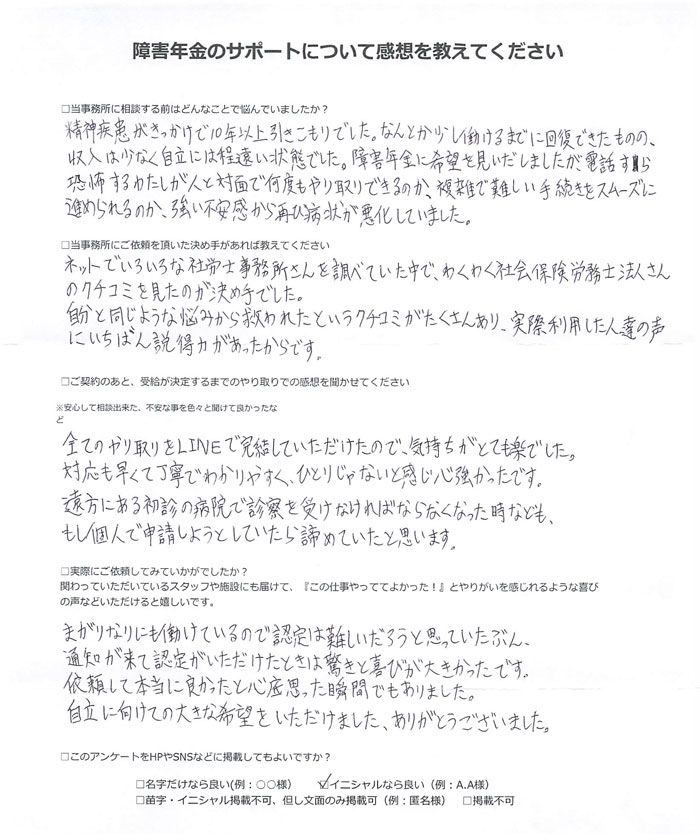 障害年金のサポートについて感想を教えてください
□当事務所に相談する前はどんなことで悩んでいましたか？
精神疾患がきっかけで10年以上引きこもりでした。なんとか少し働けるまでに回復できたものの、
収入は少なく自立には程遠い状態でした。障害年金に希望を見いだしましたが、電話すら
恐怖するわたしが人と対面で何度もやり取りできるのか、複雑で難しい手続きをスムーズに
進められるのか、強い不安感から再び病状が悪化していました。
□当事務所にご依頼を頂いた決め手があれば教えてください
ネットでいろいろな社労士事務所さんを調べていた中で、わくわく社会保険労務士法人さん
のクチコミを見たのが決め手でした。
自分と同じような悩みから救われたというクチコミがたくさんあり、実際利用した人達の声
にいちばん説得力があったからです。
□ご契約のあと、受給が決定するまでのやり取りでの感想を聞かせてください
※安心して相談出来た、不安な事を色々と聞けて良かったな
ど
全てのやり取りをLINEで完結していただけたので、気持ちがとても楽でした。
対応も早くて丁寧でわかりやすく、ひとりじゃないと感じ心強かったです。
遠方にある初診の病院で診察を受けなければならなくなった時なども、
もし個人で申請しようとしていたら諦めていたと思います。
□実際にご依頼してみていかがでしたか？
関わっていただいているスタッフや施設にも届けて、『この仕事やっててよかった！』とやりがいを感じれるような喜び
の声などいただけると嬉しいです。
まがりなりにも働けているので認定は難しいだろうと思っていたぶん、
通知が来て認定がいただけたときは驚きと喜びが大きかったです。
依頼して本当に良かったと心底思った瞬間でもありました。
自立に向けての大きな希望をいただけました、ありがとうございました。
□このアンケートをHPやSNSなどに掲載してもよいですか？
□名字だけなら良い(例：○○様) ☑イニシャルなら良い（例：A.A様）
□苗字・イニシャル掲載不可、但し文面のみ掲載可（例：匿名様） □掲載不可